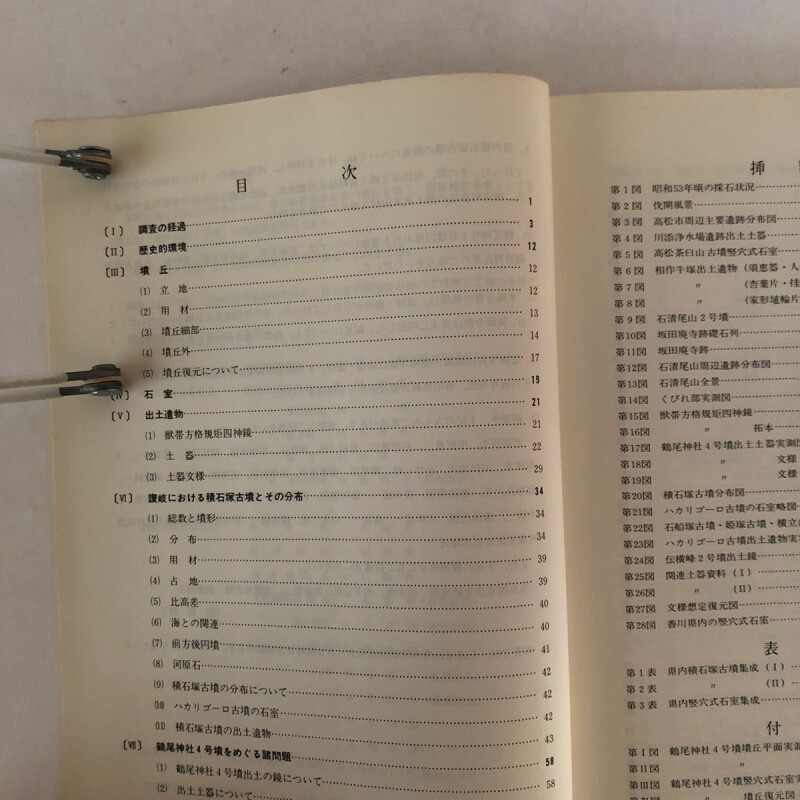 目次
〔Ⅰ〕 調査の経過……1
〔Ⅱ〕 歴史的環境……3
〔Ⅲ〕 墳丘……12
⑴ 立地……12
⑵ 用材……12
⑶ 墳丘細部……13
⑷ 墳丘外……14
⑸ 墳丘復元について……17
〔Ⅳ〕 石室……19
〔Ⅴ〕 出土遺物……21
⑴ 獣帯方格規矩四神鏡……21
⑵ 土器……22
⑶ 土器文様……29
〔Ⅵ〕 讃岐における積石塚古墳とその分布……34
⑴ 総数と墳形……34
⑵ 分布……34
⑶ 用材……39
⑷ 占地……39
⑸ 比高差……40
⑹ 海との関連……40
⑺ 前方後円墳……41
⑻ 河原石……42
⑼ 積石塚古墳の分布について……42
⑽ ハカリゴーロ古墳の石室……42
⑾ 積石塚古墳の出土遺物……43
〔Ⅶ〕 鶴尾神社4号墳をめぐる諸問題……58
⑴ 鶴尾神社4号墳出土の鏡について……58
⑵ 出土土器について……
挿
第1図 昭和53年頃の採石状況……
第2図 伐開風景……
第3図 高松市周辺主要遺跡分布図……
第4図 川添浄水場遺跡出土土器……
第5図 高松茶臼山古墳竪穴式石室……
第6図 相作牛塚出土遺物(須恵器・人
第7図 〃 (杏葉片・挂
第8図 〃 (家形埴輪片
第9図 石清尾山2号墳……
第10図 坂田廃寺跡礎石列……
第11図 坂田廃寺跡……
第12図 石清尾山周辺遺跡分布図……
第13図 石清尾山全景……
第14図 くびれ部実測図……
第15図 獣帯方格規矩四神鏡……
第16図 〃 拓本……
第17図 鶴尾神社4号墳出土土器実測図
第18図 〃 文様
第19図 〃 文様
第20図 積石塚古墳分布図……
第21図 ハカリゴーロ古墳の石室略図……
第22図 石船塚古墳・姫塚古墳・横立山
第23図 ハカリゴーロ古墳出土遺物実
第24図 伝横峰2号墳出土鏡……
第25図 関連土器資料(Ⅰ)……
第26図 〃 (Ⅱ)……
第27図 文様想定復元図……
第28図 香川県内の竪穴式石室……
表
第1表 県内積石塚古墳集成(Ⅰ)……
第2表 〃 (Ⅱ)……
第3表 県内竪穴式石室集成……
付
第Ⅰ図 鶴尾神社4号墳墳丘平面実測
第Ⅱ図 〃
第Ⅲ図 鶴尾神社4号墳竪穴式石室実
〃 墳丘復元図